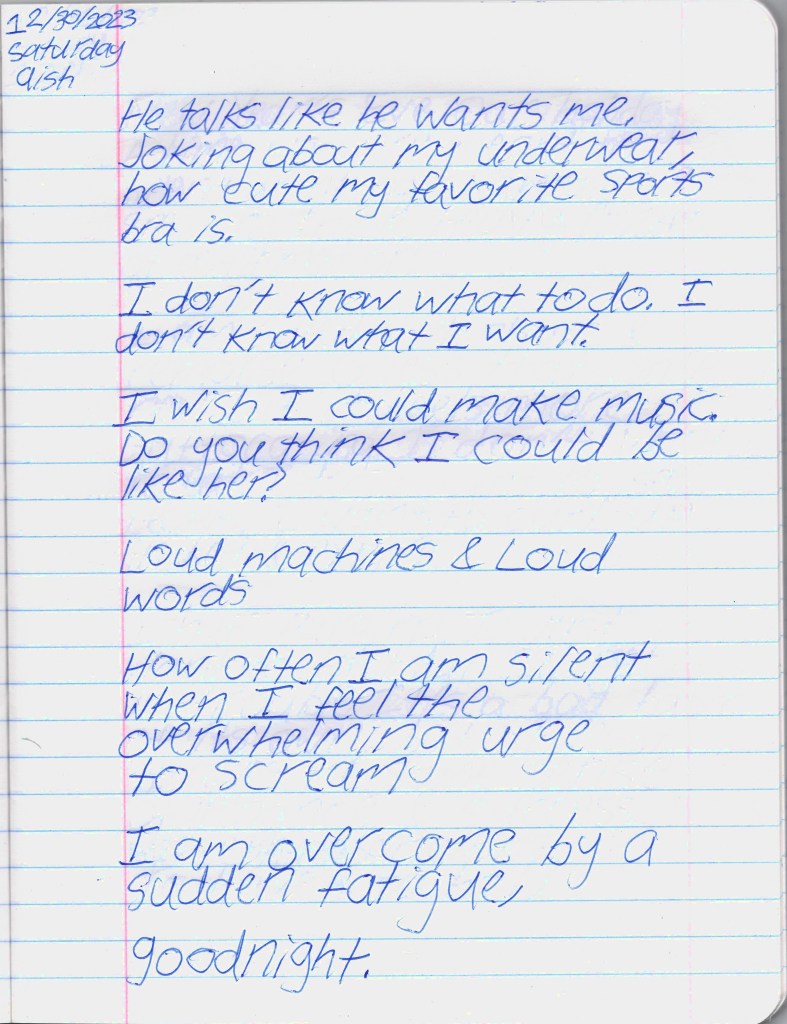 12/30/2023
saturday
dish
He talks like he wants me.
Joking about my underwear,
how cute my favorite sports
bra is.
I don't know what to do. I
don't know what I want.
I wish I could make music.
Do you think I could be
like her?
Loud machines & Loud
words
How often I am silent
when I feel the
overwhelming urge
to scream
I am overcome by a
sudden fatigue,
goodnight.